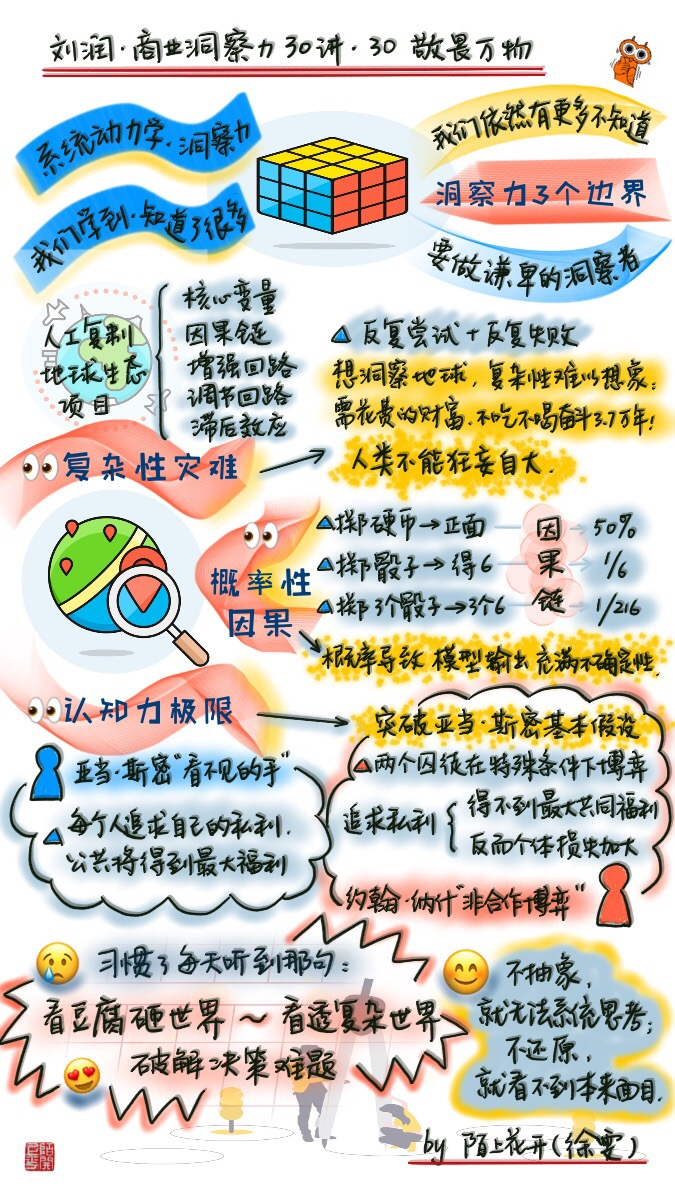 刘润·商业洞察力30讲·30 敬畏万物
系统动力学·洞察力
我们学到·知道了很多
我们依然有更多不知道
洞察力3个边界
要做谦卑的洞察者
人工复制
地球生态
项目
核心变量
因果链
增强回路
调节回路
滞后效应
复杂性灾难
反复尝试+反复失败
想洞察地球，复杂性难以想象；
需花费的财富，不吃不喝奋斗3.7万年！
人类不能狂妄自大.
概率性
因果
掷硬币→正面
因
50%
掷骰子→得6
果
1/6
掷3个骰子→3个6
链
1/216
概率导致 模型输出 充满不确定性.
认知力极限
亚当·斯密"看不见的手"
每个人追求自己的私利.
公共将得到最大福利
突破亚当·斯密基本假设
两个囚徒在特殊条件下博弈
追求私利
得不到最大共同福利
反而个体损失加大
约翰·纳什"非合作博弈"
习惯了每天听到那句：
看豆腐砸世界～看透复杂世界
破解决策难题
不抽象，
就无法系统思考；
不还原，
就看不到本来面目.
by 陌上花开(徐雯)